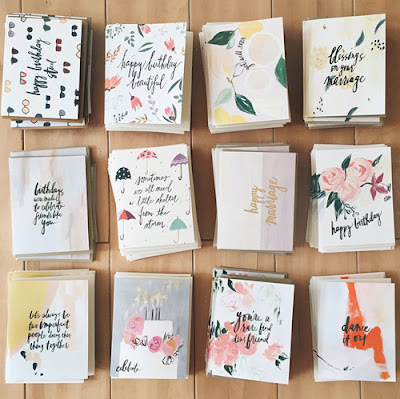 happy birthday
stud
happy birthday
beautiful
well
blessings
on your
marriage
birthdays
were made
to celebrate
friends like
you.
sometimes
we all need
a little shelter
from the
storm
happy
marriage
happy birthday
let's always be
two imperfect
people doing this
thing together
celebrate
you're a
rare find
dear friend
dance
it out